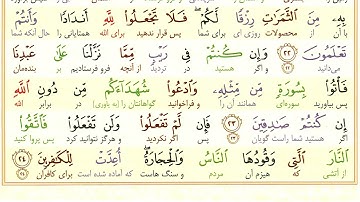 بِهِۦ مِنَ الثَّمَرَاتِ رِزْقًا لَّكُمْ فَلَا تَجْعَلُوا لِلَّهِ أَندَادًا وَأَنتُمْ
از محصولات روزی ای برای شما پس قرار ندهید برای الله همتایانی را حال آنکه شما
تَعْلَمُونَ ﴿٢٢﴾ وَإِن كُنتُمْ فِي رَيْبٍ مِّمَّا نَزَّلْنَا عَلَىٰ عَبْدِنَا
می دانید ۲۲ و اگر هستید در تردید از آنچه فرو فرستادیم بر بنده‌مان
فَأْتُوا بِسُورَةٍ مِّن مِّثْلِهِۦ وَادْعُوا شُهَدَاءَكُم مِّن دُونِ اللَّهِ
پس بیاورید سوره‌ای همانند آن را و فراخوانید گواهانتان را (به یاوری) در برابر الله
إِن كُنتُمْ صَادِقِينَ ﴿٢٣﴾ فَإِن لَّمْ تَفْعَلُوا وَلَن تَفْعَلُوا فَاتَّقُوا
اگر هستید شما راست گویان ۲۳ پس اگر نکردید و هرگز نتوانید کرد پس پروا کنید
النَّارَ الَّتِي وَقُودُهَا النَّاسُ وَالْحِجَارَةُ أُعِدَّتْ لِلْكَافِرِينَ ﴿٢٤﴾
از آتشی که هیزم آن مردم و سنگ هاست که آماده شده است برای کافران ۲۴